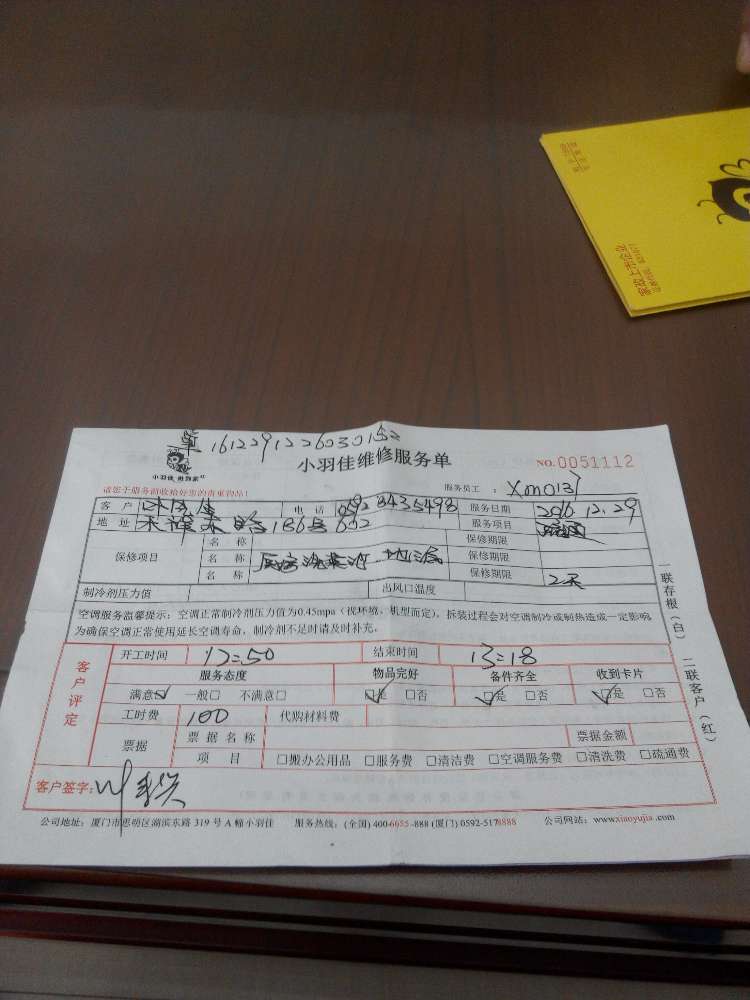 家政上市企业
单 1612291226030152
小羽佳维修服务单
NO.0051112
请您于服务前收拾好您的贵重物品!
服务员工: Xm0137
客户 电话 服务日期 2016.12.29
地址 服务项目
保修项目 名称 保修期限
名称 厨房洗菜池 地漏 保修期限
名称 保修期限 2天
制冷剂压力值 出风口温度
空调服务温馨提示:空调正常制冷剂压力值为0.45mpa(视环境、机型而定),拆装过程会对空调制冷或制热造成一定影响
为确保空调正常使用延长空调寿命,制冷剂不足时请及时补充。
一联存根(白) 二联客户(红)
客户评定
开工时间 12:50 结束时间 13:18
服务态度 物品完好 备件齐全 收到卡片
满意☑ 一般□ 不满意□ ☑是 □否 ☑是 □否 ☑是 □否
工时费 100 代购材料费
票据 票据名称 票据金额
项目 □搬办公用品 □服务费 □清洁费 □空调服务费 □清洗费 □疏通费
客户签字:
公司地址:厦门市思明区湖滨东路 319 号 A 幢小羽佳 服务热线:(全国) 400-6655-888 (厦门) 0592-5178888 公司网站:www.xiaoyujia.com